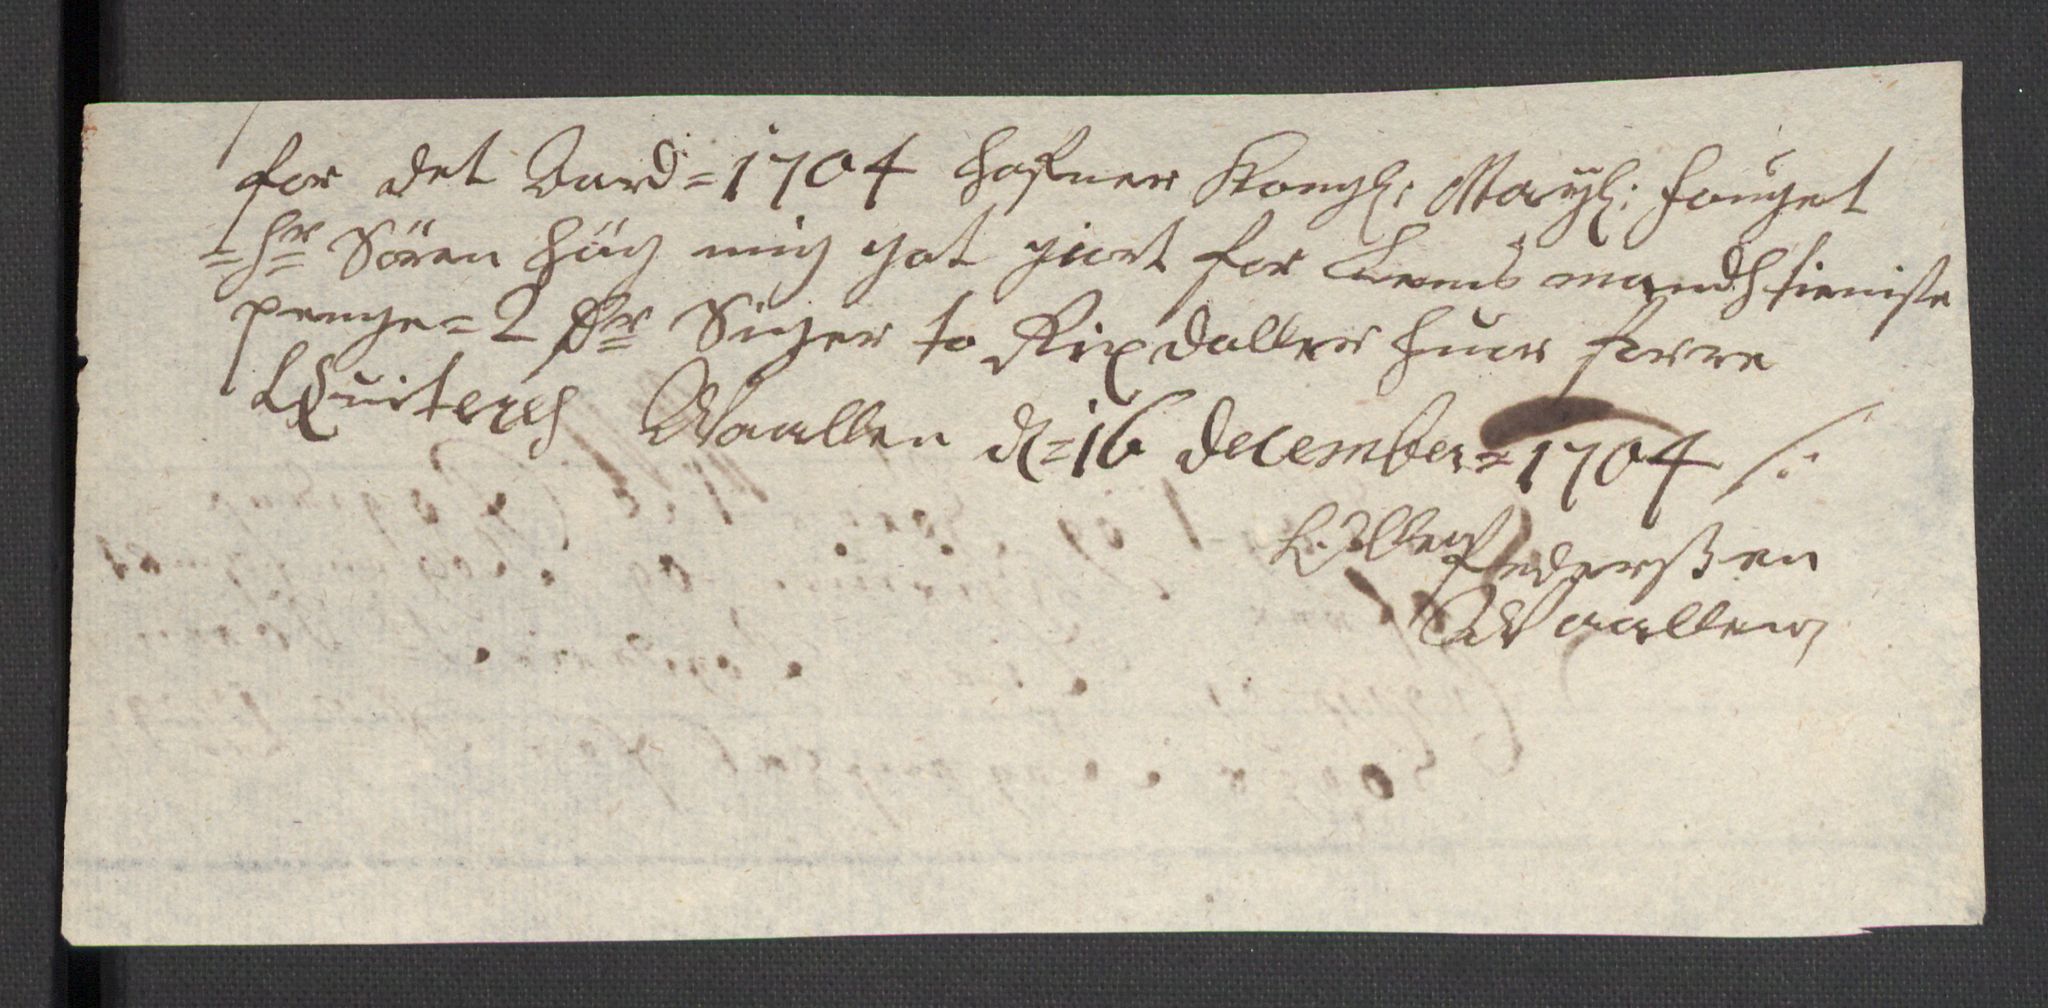 for det Aard = 1704 hafuer Kongl: Mayl: fouget
= Hr Sören Höy mig got giort for Lens mandss tieniste
penge = 2 Rdr Siger to Rixdaller huor forre
qviteres Waallen d = 16 december = 1704 /:
Pederssen
Waallen